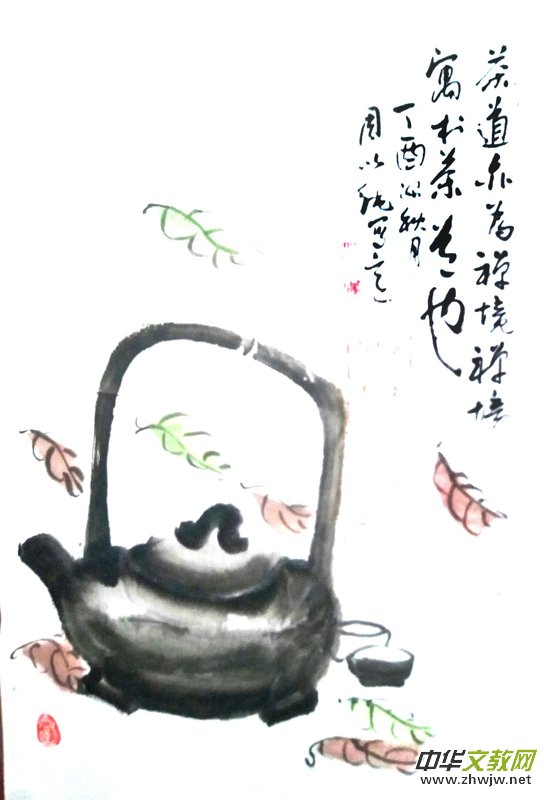 茶道亦为禅境禅境
寓于茶道也
丁酉深秋月
周以
写意
中华文教网
www.zhwjw.net